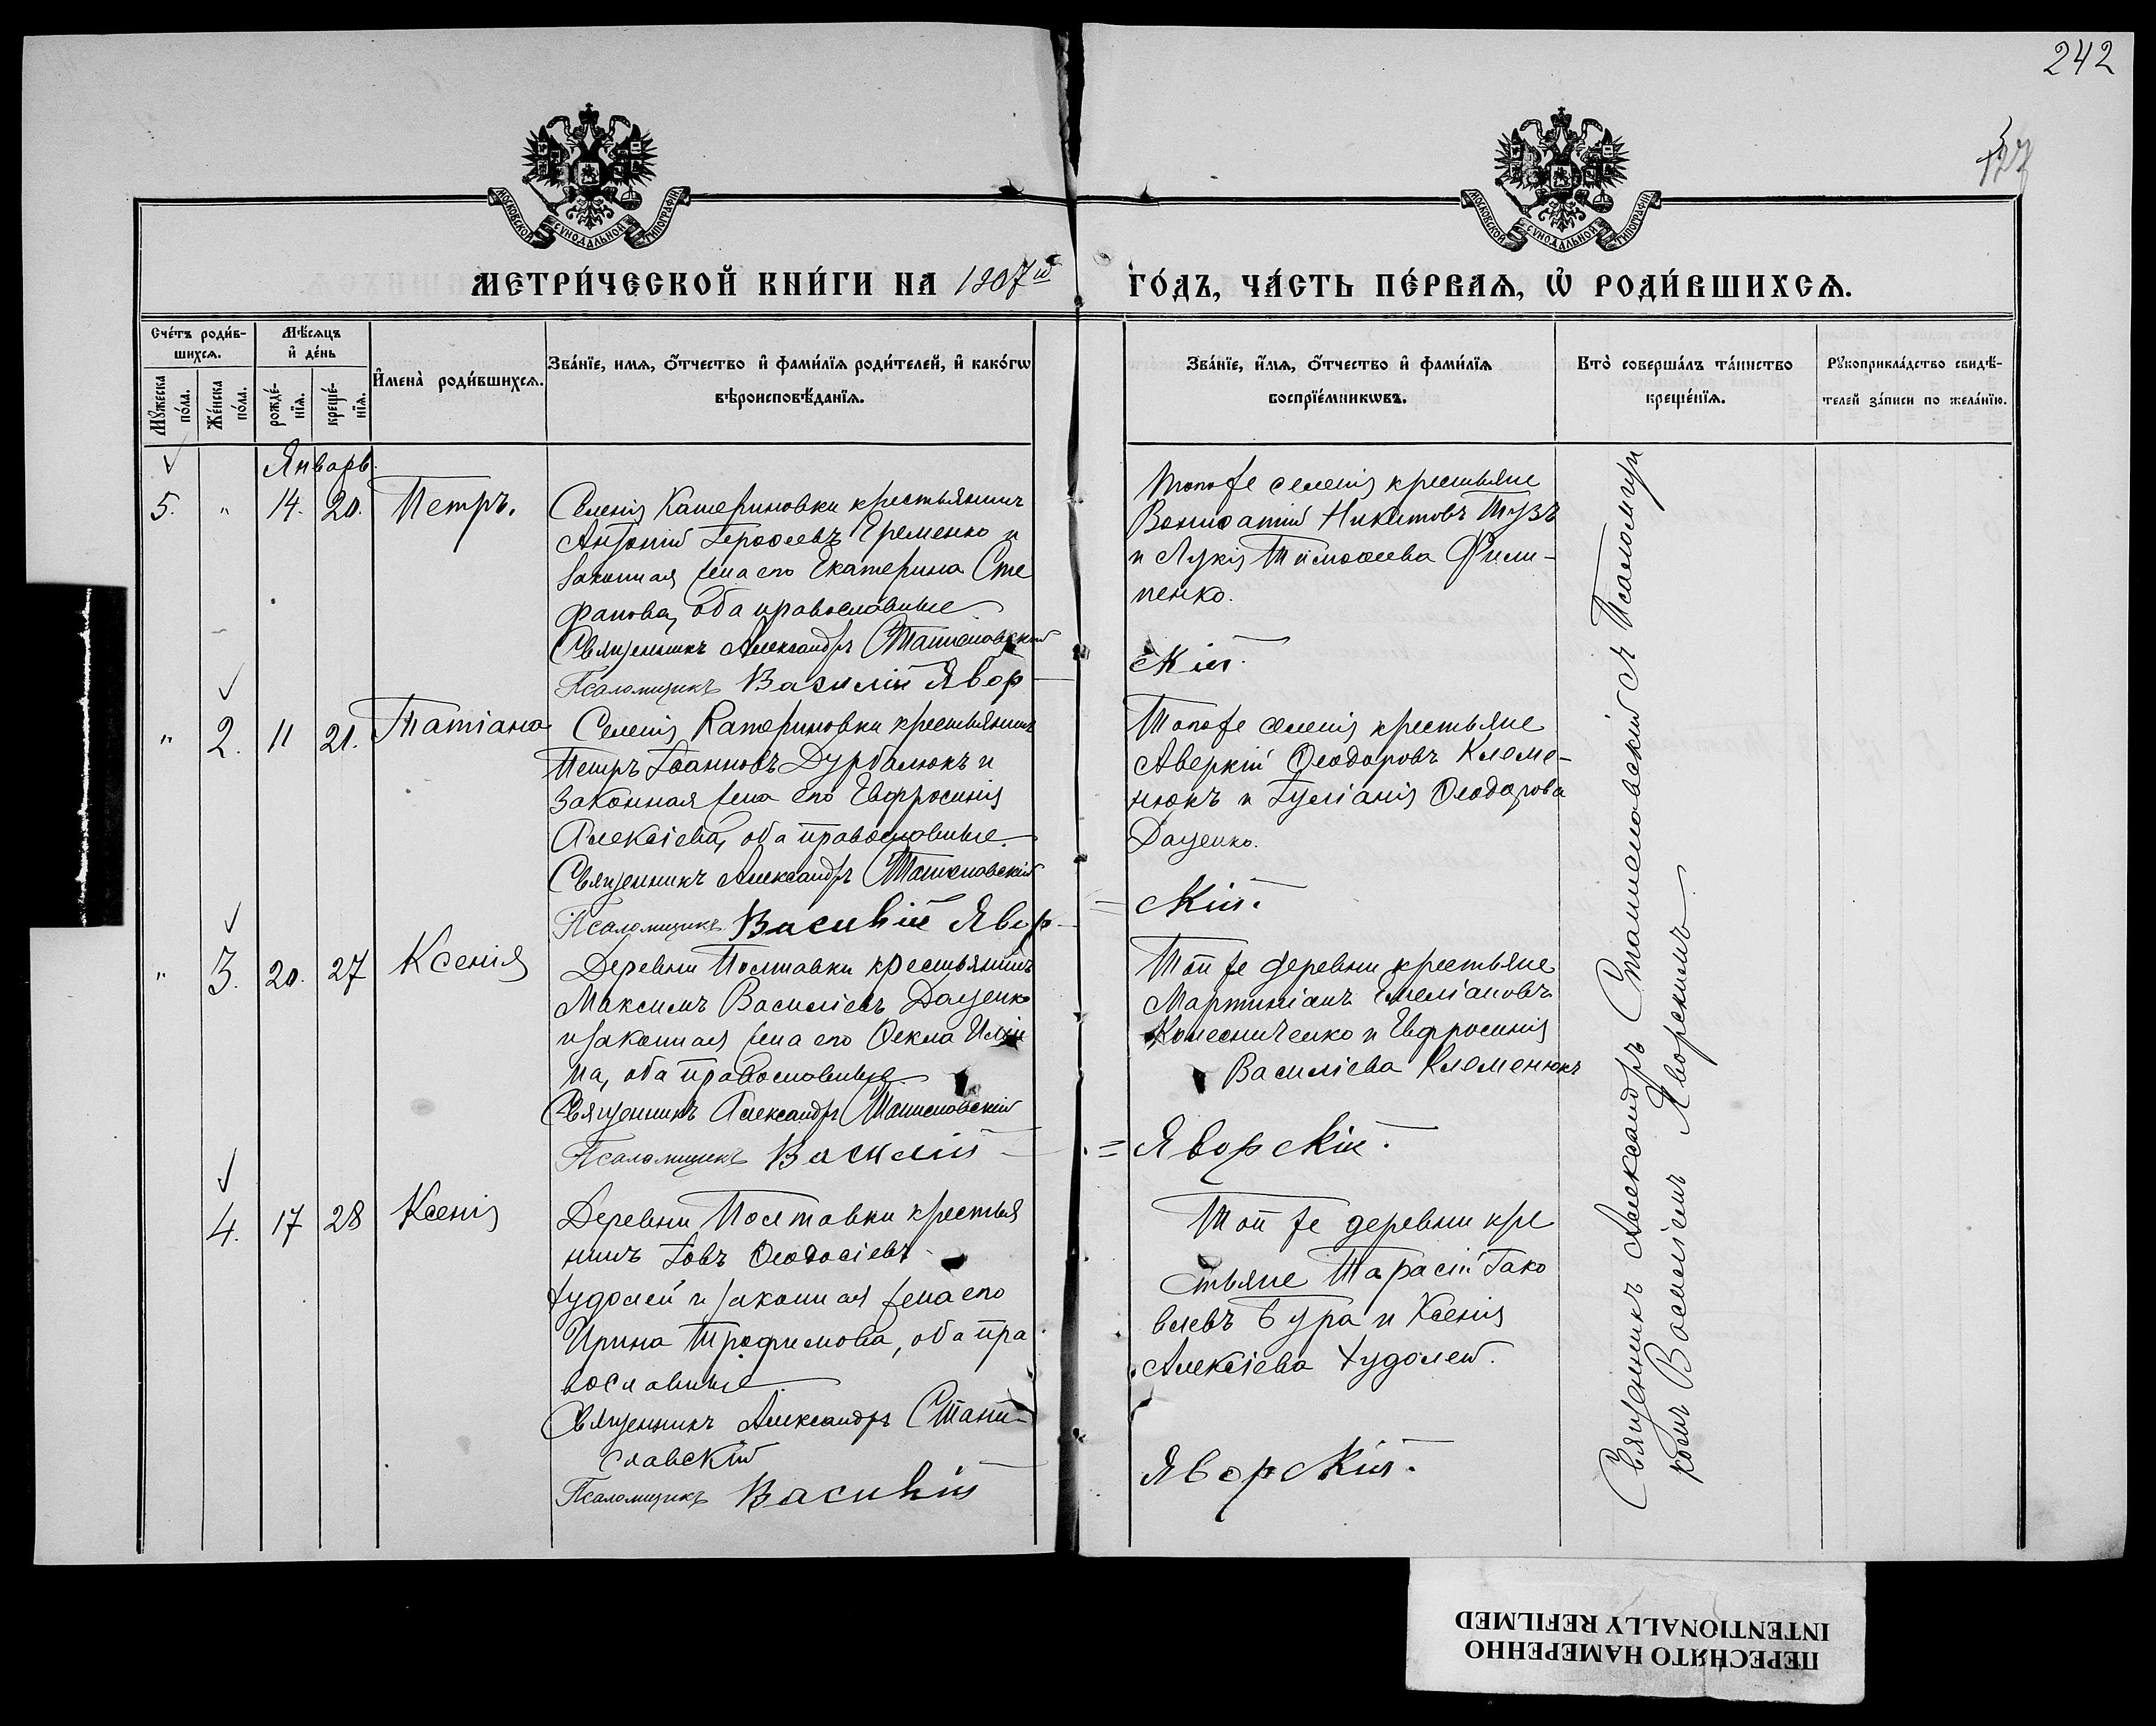 242
МОСКОВСКОЙ СѴНОДАЛЬНОЙ ТИПОГРАФІИ
МОСКОВСКОЙ СѴНОДАЛЬНОЙ ТИПОГРАФІИ
МЕТРИ́ЧЕСКОЙ КНИ́ГИ НА 1907й
ГО́ДЪ, ЧА́СТЬ ПЕ́РВАѦ, Ѡ҆ РОДИ́ВШИХСѦ.
Сче́тъ роди́в-
шихсѧ.
Мꙋ́жеска по́ла.
Же́нска по́ла.
Мѣ́сѧцъ
и҆ де́нь
рожде́-
нїѧ.
креще́-
нїѧ.
И҆мена̀ роди́вшихсѧ.
Зва́нїе, имѧ, ѻ҆́тчество и҆ фами́лїѧ роди́телей, и҆ како́гѡ
вѣроисповѣ́данїѧ.
Зва́нїе, и҆́мѧ, ѻ҆́тчество и҆ фами́лїѧ
воспрїе́мникѡвъ.
Кто̀ соверша́лъ та́инство
креще́нїѧ.
Рꙋкоприкла́дство свидѣ́-
телей за́писи по жела́нїю.
Январь.
5. " 14. 20. Петръ.
Селенія Катериновки крестьянинъ
Антоній Іерофеевъ Еременко и
законная жена его Екатерина Сте
фанова, оба православные
Священникъ Александръ Станиславскій
Псаломщикъ Василій Явор
Того же селенія крестьяне
Вонифатій Никитовъ Тузъ
и Лукія Тимофеева Фили-
пенко.
скій.
" 2. 11 21. Татіана
Селенія Катериновки крестьянинъ
Петръ Іоанновъ Дурбалюкъ и
законная жена его Евфросинія
Алексіева, оба православные.
Священникъ Александръ Станиславскій
Псаломщикъ Василій Явор-
Того же селенія крестьяне
Аверкій Ѳеодоровъ Клеме-
нюкъ и Іуліанія Ѳеодорова
Даценко.
=скій.
" 3. 20. 27 Ксенія
Деревни Полтавки крестьянинъ
Максимъ Василіевъ Даценко
и законная жена его Ѳекла Иліи
на, оба православные.
Священникъ Александръ Станиславскій
Псаломщикъ Василій
Той же деревни крестьяне
Мартиніанъ Емеліановъ
Колесниченко и Евфросинія
Василіева Клеменюкъ
=Яворскій.
4. 17 28 Ксенія
Деревни Полтавки крестья
нинъ Іовъ Ѳеодосіевъ
Худолей и законная жена его
Ирина Трофимова, оба пра
вославные.
Священникъ Александръ Стани-
славскій
Псаломщикъ Василій
Той же деревни кре
стьяне Тарасій Іако
влевъ Бура и Ксенія
Алексіева Худолей.
Яворскій.
Священникъ Александръ Станиславскій съ Псаломщи
комъ Василіемъ Яворскимъ
ПЕРЕСНЯТО НАМЕРЕННО
INTENTIONALLY REFILMED